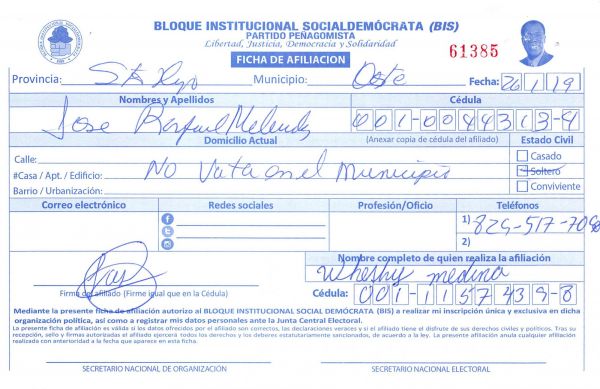 BLOQUE INSTITUCIONAL SOCIALDEMÓCRATA (BIS)
PARTIDO PEÑAGOMISTA
Libertad, Justicia, Democracia y Solidaridad
FICHA DE AFILIACION
61385
Provincia: Municipio: Oeste Fecha: 26/1/19
Nombres y Apellidos Cédula
Jose Rafael Melendez 001-0044313-4
Domicilio Actual (Anexar copia de cédula del afiliado) Estado Civil
Calle: No Vota en el Municipio
#Casa / Apt. / Edificio:
Barrio / Urbanización:
Casado
Soltero
Conviviente
Correo electrónico Redes sociales Profesión/Oficio Teléfonos
1) 829-517-7090
2)
Nombre completo de quien realiza la afiliación
Wheshy medina
Firma del afiliado (Firme igual que en la Cédula) Cédula: 001-1157439-8
Mediante la presente ficha de afiliación autorizo al BLOQUE INSTITUCIONAL SOCIAL DEMÓCRATA (BIS) a realizar mi inscripción única y exclusiva en dicha
organización política, así como a registrar mis datos personales ante la Junta Central Electoral.
La presente ficha de afiliación es válida si los datos ofrecidos por el afiliado son correctos, las declaraciones veraces y si el afiliado tiene el disfrute de sus derechos civiles y políticos. Tras su
recepción, sello y firmas autorizadas el afiliado ejercerá todos los derechos y los deberes estatutariamente sancionados, de acuerdo a la ley. La presente afiliación anula cualquier afiliación
realizada con anterioridad a la fecha que aparece en esta ficha.
SECRETARIO NACIONAL DE ORGANIZACIÓN SECRETARIO NACIONAL ELECTORAL